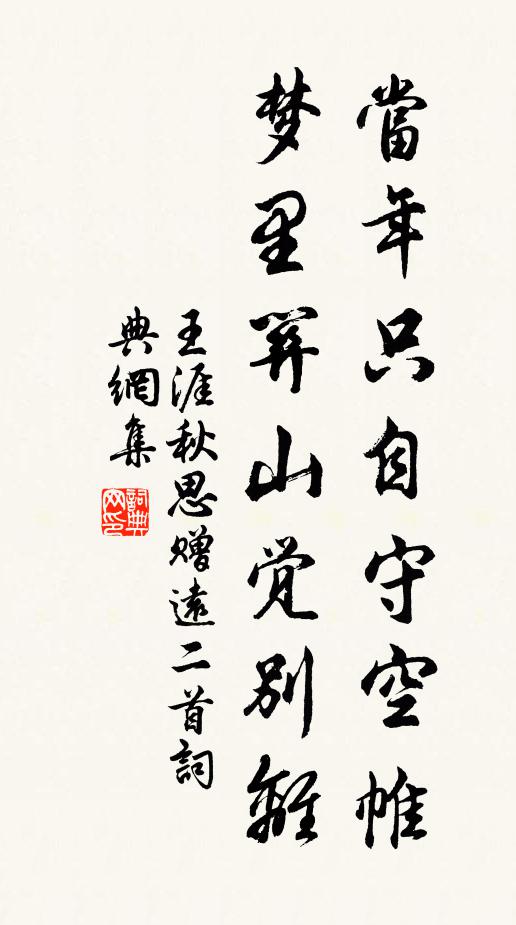 當年只自守空帷
梦里關山觉別離
王涯秋思贈遠二首詞
典網集
詞典网印